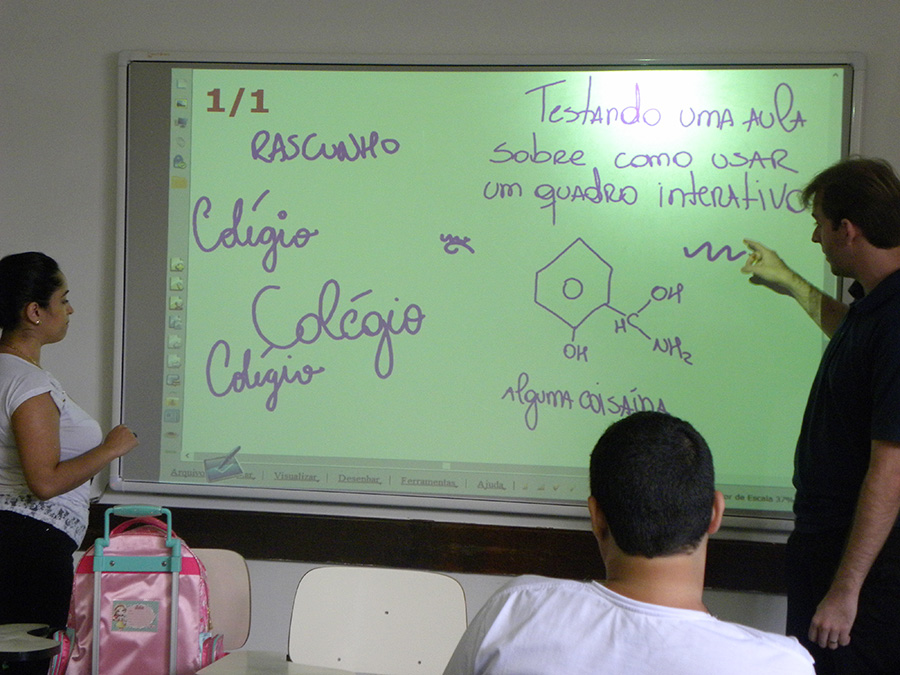 1/1
RASCUNHO
Colégio
Colégio
Colégio
Testando uma aula
sobre como usar
um quadro interativo
OH
H C
NH2
OH
Alguma coisaína
Arquivo Visualizar Desenhar Ferramentas Ajuda
de Escala 37%